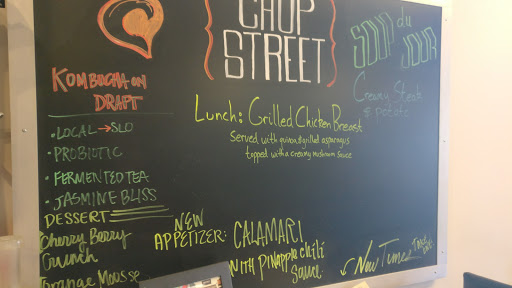 CHOP
STREET
SOUP du
JOUR
Creamy Steak
& potato
KOMBUCHA ON
DRAFT
• LOCAL → SLO
• PROBIOTIC
• FERMENTED TEA
• JASMINE BLISS
DESSERT
Cherry Berry
Crunch
Orange Mousse
Lunch: Grilled Chicken Breast
Served with quinoa & grilled asparagus
topped with a creamy mushroom sauce
NEW
APPETIZER: CALAMARI
WITH PINAPPLE CHILI
Sauce
↙ New Times